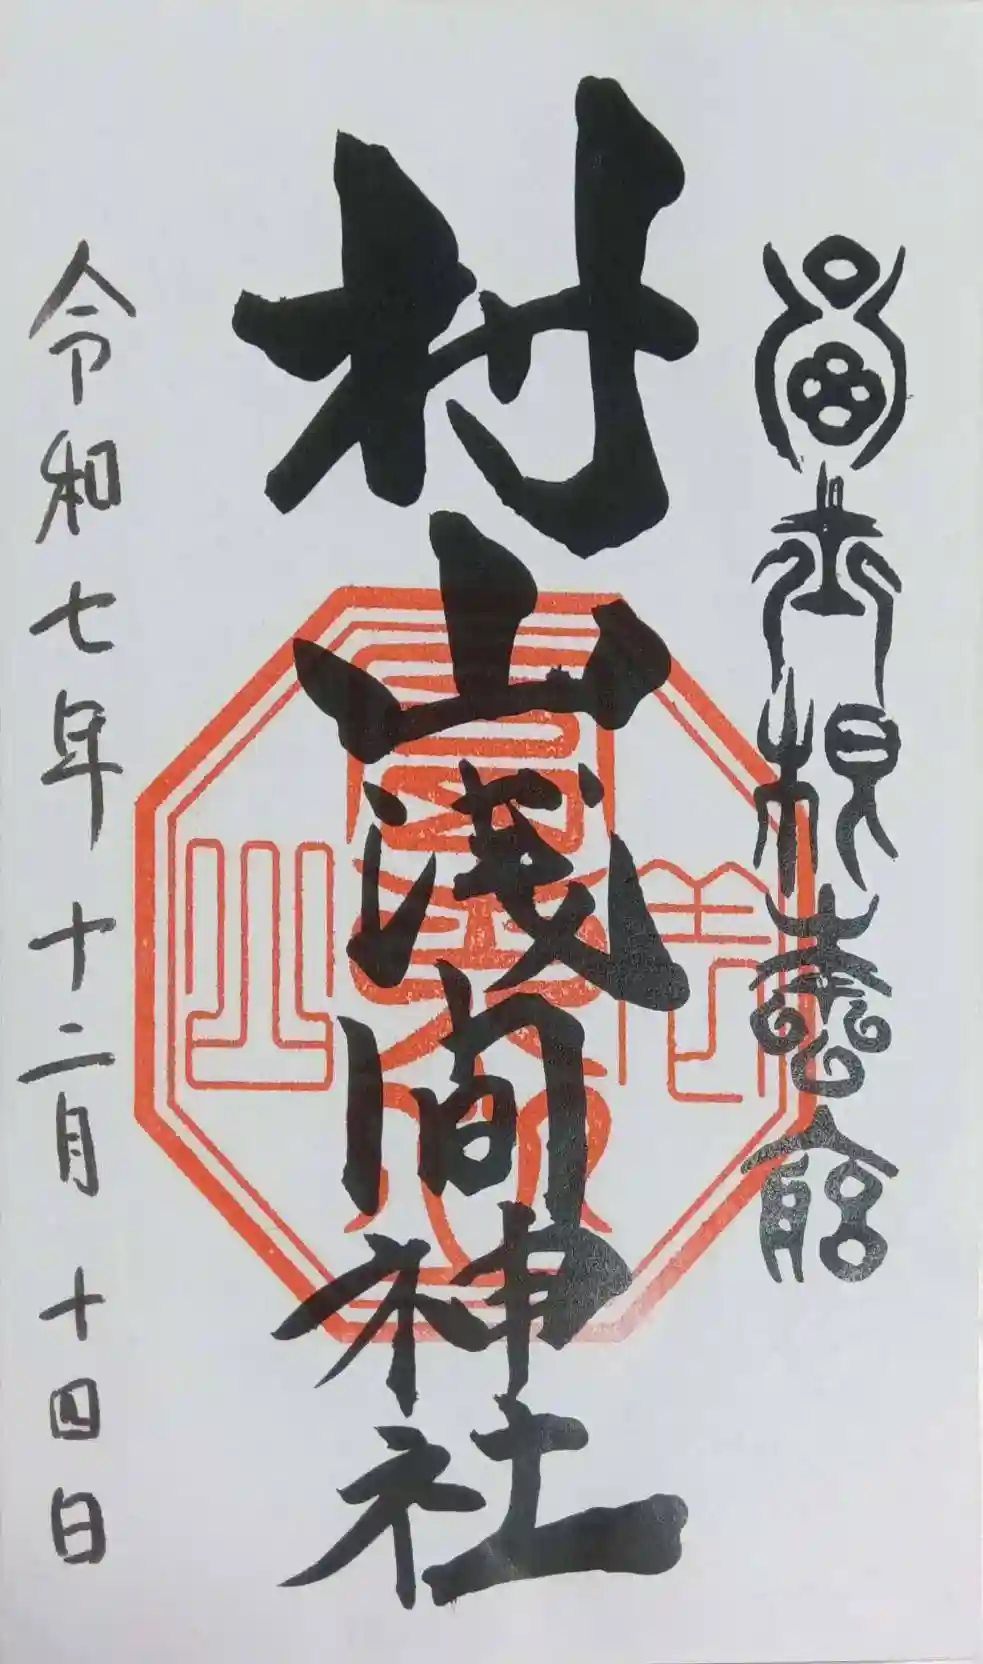 富士根本宮
村山浅間神社
令和七年十二月十四日